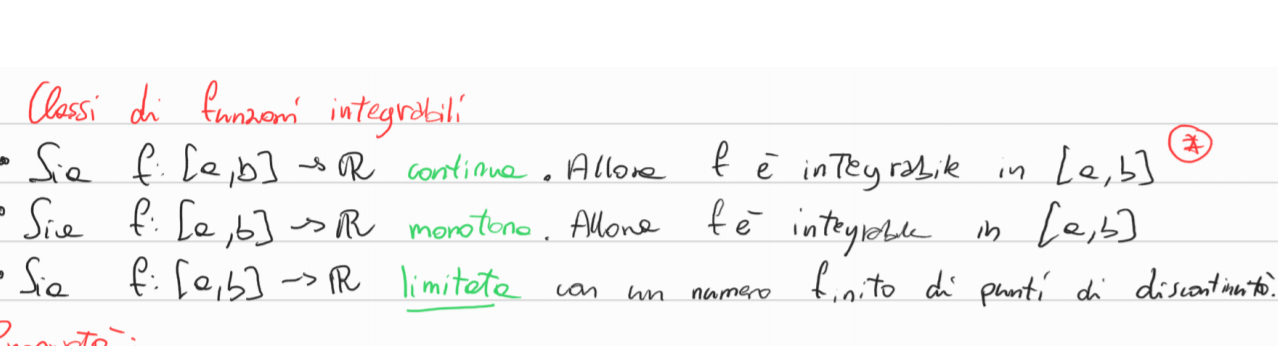 Classi di funzioni integrabili
• Sia f: [a,b] → ℝ continua. Allora f è integrabile in [a,b] *
• Sia f: [a,b] → ℝ monotona. Allora f è integrabile in [a,b]
• Sia f: [a,b] → ℝ limitata con un numero finito di punti di discontinuità.